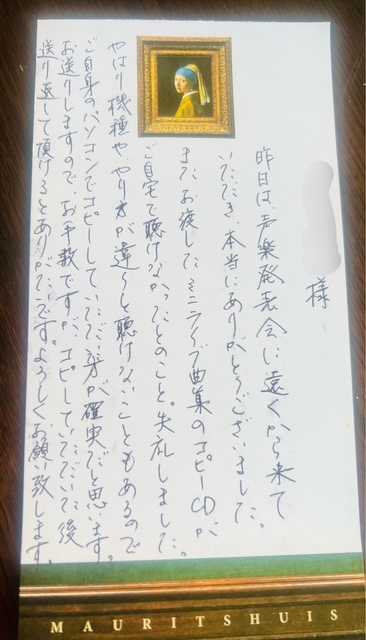 様
昨日は、声楽発表会に遠くから来て
いただき、本当にありがとうございました。
またお渡ししたミニライブ曲集のコピーCDが
ご自宅で聴けなかったとのこと。失礼しました。
やはり機種や、やり方が違うと聴けないこともあるので
ご自身のパソコンでコピーしていただく方が確実だと思います。
お送りしますので、お手数ですが、コピーしていただいた後
送り返して頂けるとありがたいです。よろしくお願い致します。
MAURITSHUIS